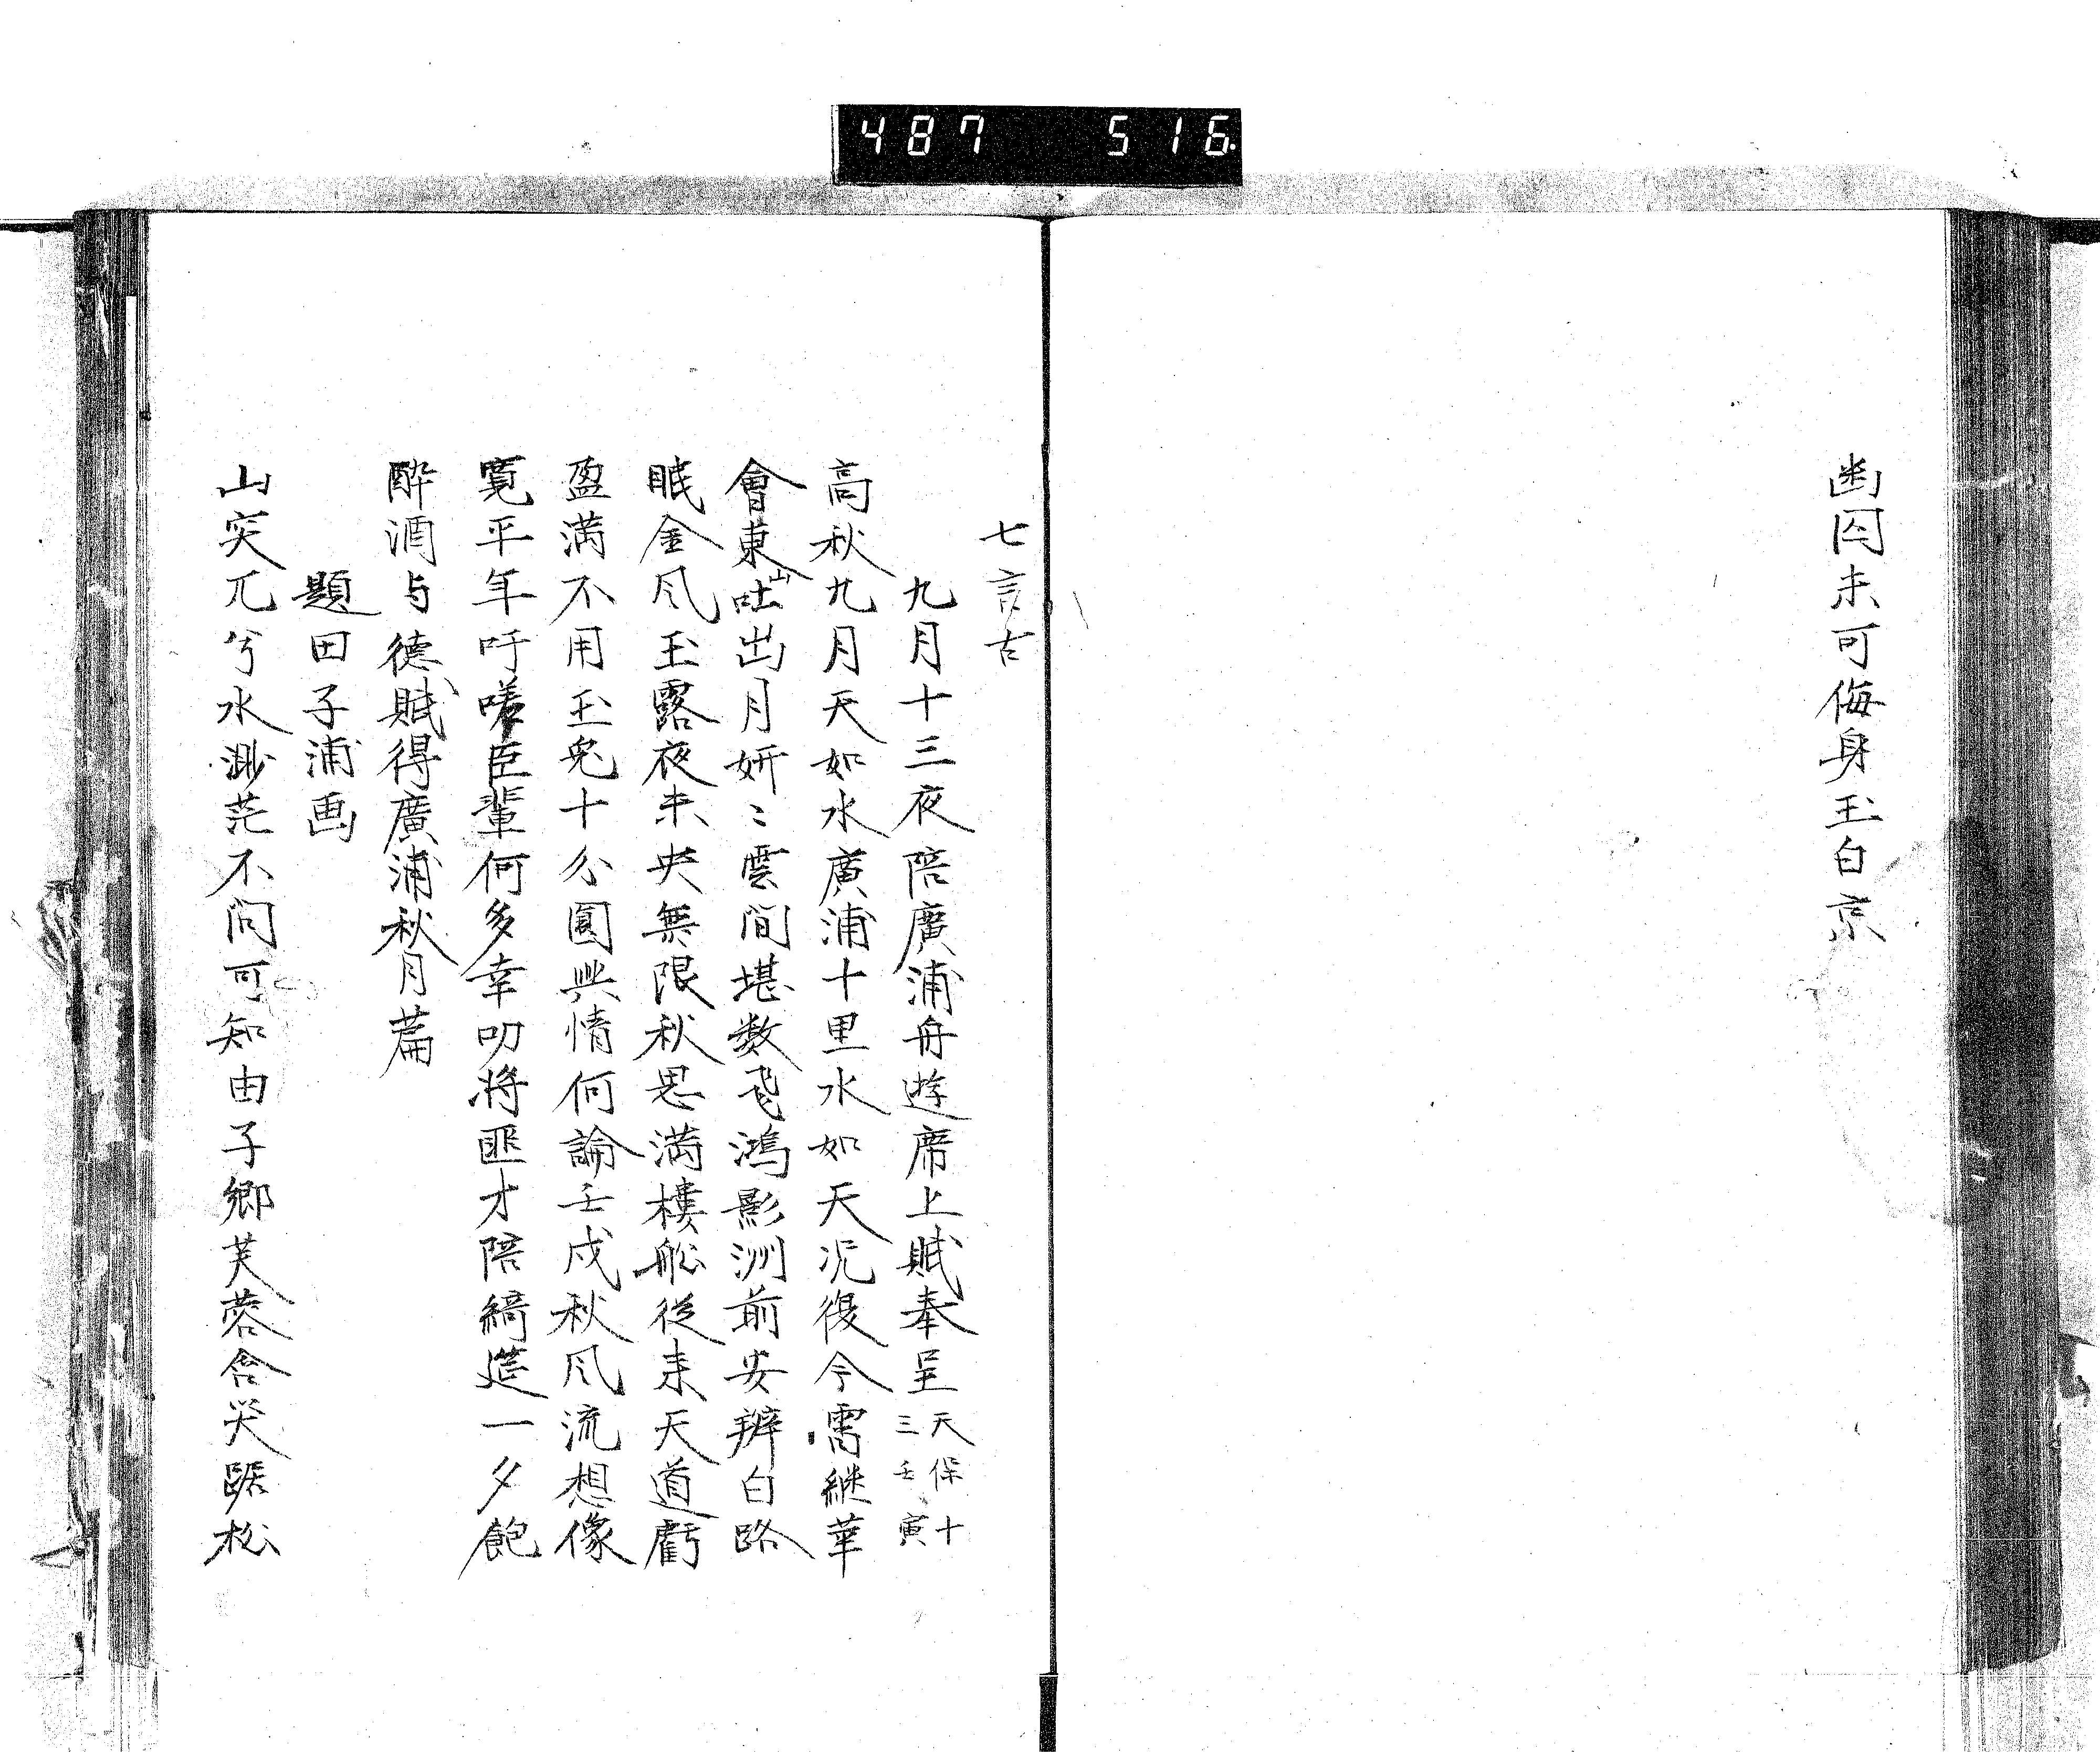 487 516
幽囚未可侮身玉白京
七言古
九月十三夜陪廣浦舟遊席上賦奉呈 天保十三壬寅
高秋九月天如水廣浦十里水如天况復今霄継華
會東山吐出月妍〻雲間堪数飛鴻影洲前安辨白路
眠金风玉露夜未央無限秋思満樓舩從来天道虧
盈満不用玉兎十分圓興情何論壬戌秋风流想像
寛平年吁嗟臣輩何多幸叨将匪才陪綺筵一夕飽
酔酒与徳賦得廣浦秋月篇
題田子浦画
山突兀兮水渺茫不问可知由子郷芙蓉含笑踞松